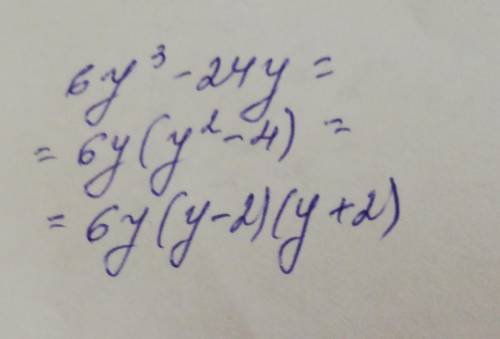 6y³ - 24y =
= 6y(y² - 4) =
= 6y(y - 2)(y + 2)